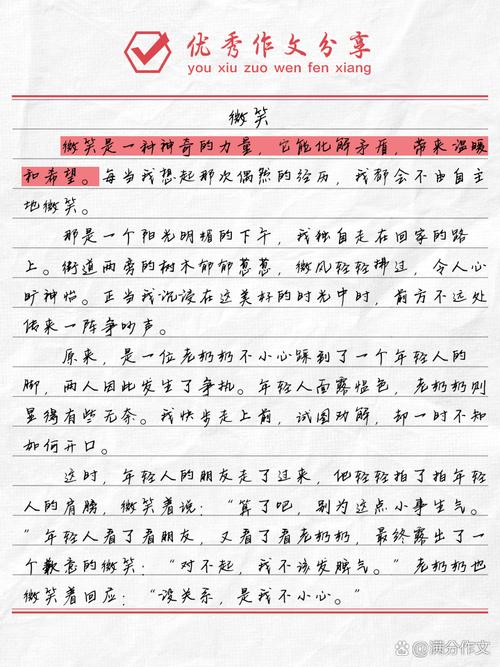 优秀作文分享
you xiu zuo wen fen xiang
微笑
微笑是一种神奇的力量，它能化解矛盾，带来温暖
和希望。每当我想起那次偶然的经历，我都会不由自主
地微笑。
那是一个阳光明媚的下午，我独自走在回家的路
上。街道两旁的树木郁郁葱葱，微风轻轻拂过，令人心
旷神怡。正当我沉浸在这美好的时光中时，前方不远处
传来一阵争吵声。
原来，是一位老奶奶不小心踩到了一个年轻人的
脚，两人因此发生了争执。年轻人面露愠色，老奶奶则
显得有些无奈。我快步走上前，试图劝解，却一时不知
如何开口。
这时，年轻人的朋友走了过来，他轻轻拍了拍年轻
人的肩膀，微笑着说：“算了吧，别为这点小事生气。
”年轻人看了看朋友，又看了看老奶奶，最终露出了一
个歉意的微笑：“对不起，我不该发脾气。”老奶奶也
微笑着回应：“没关系，是我不小心。”
@满分作文